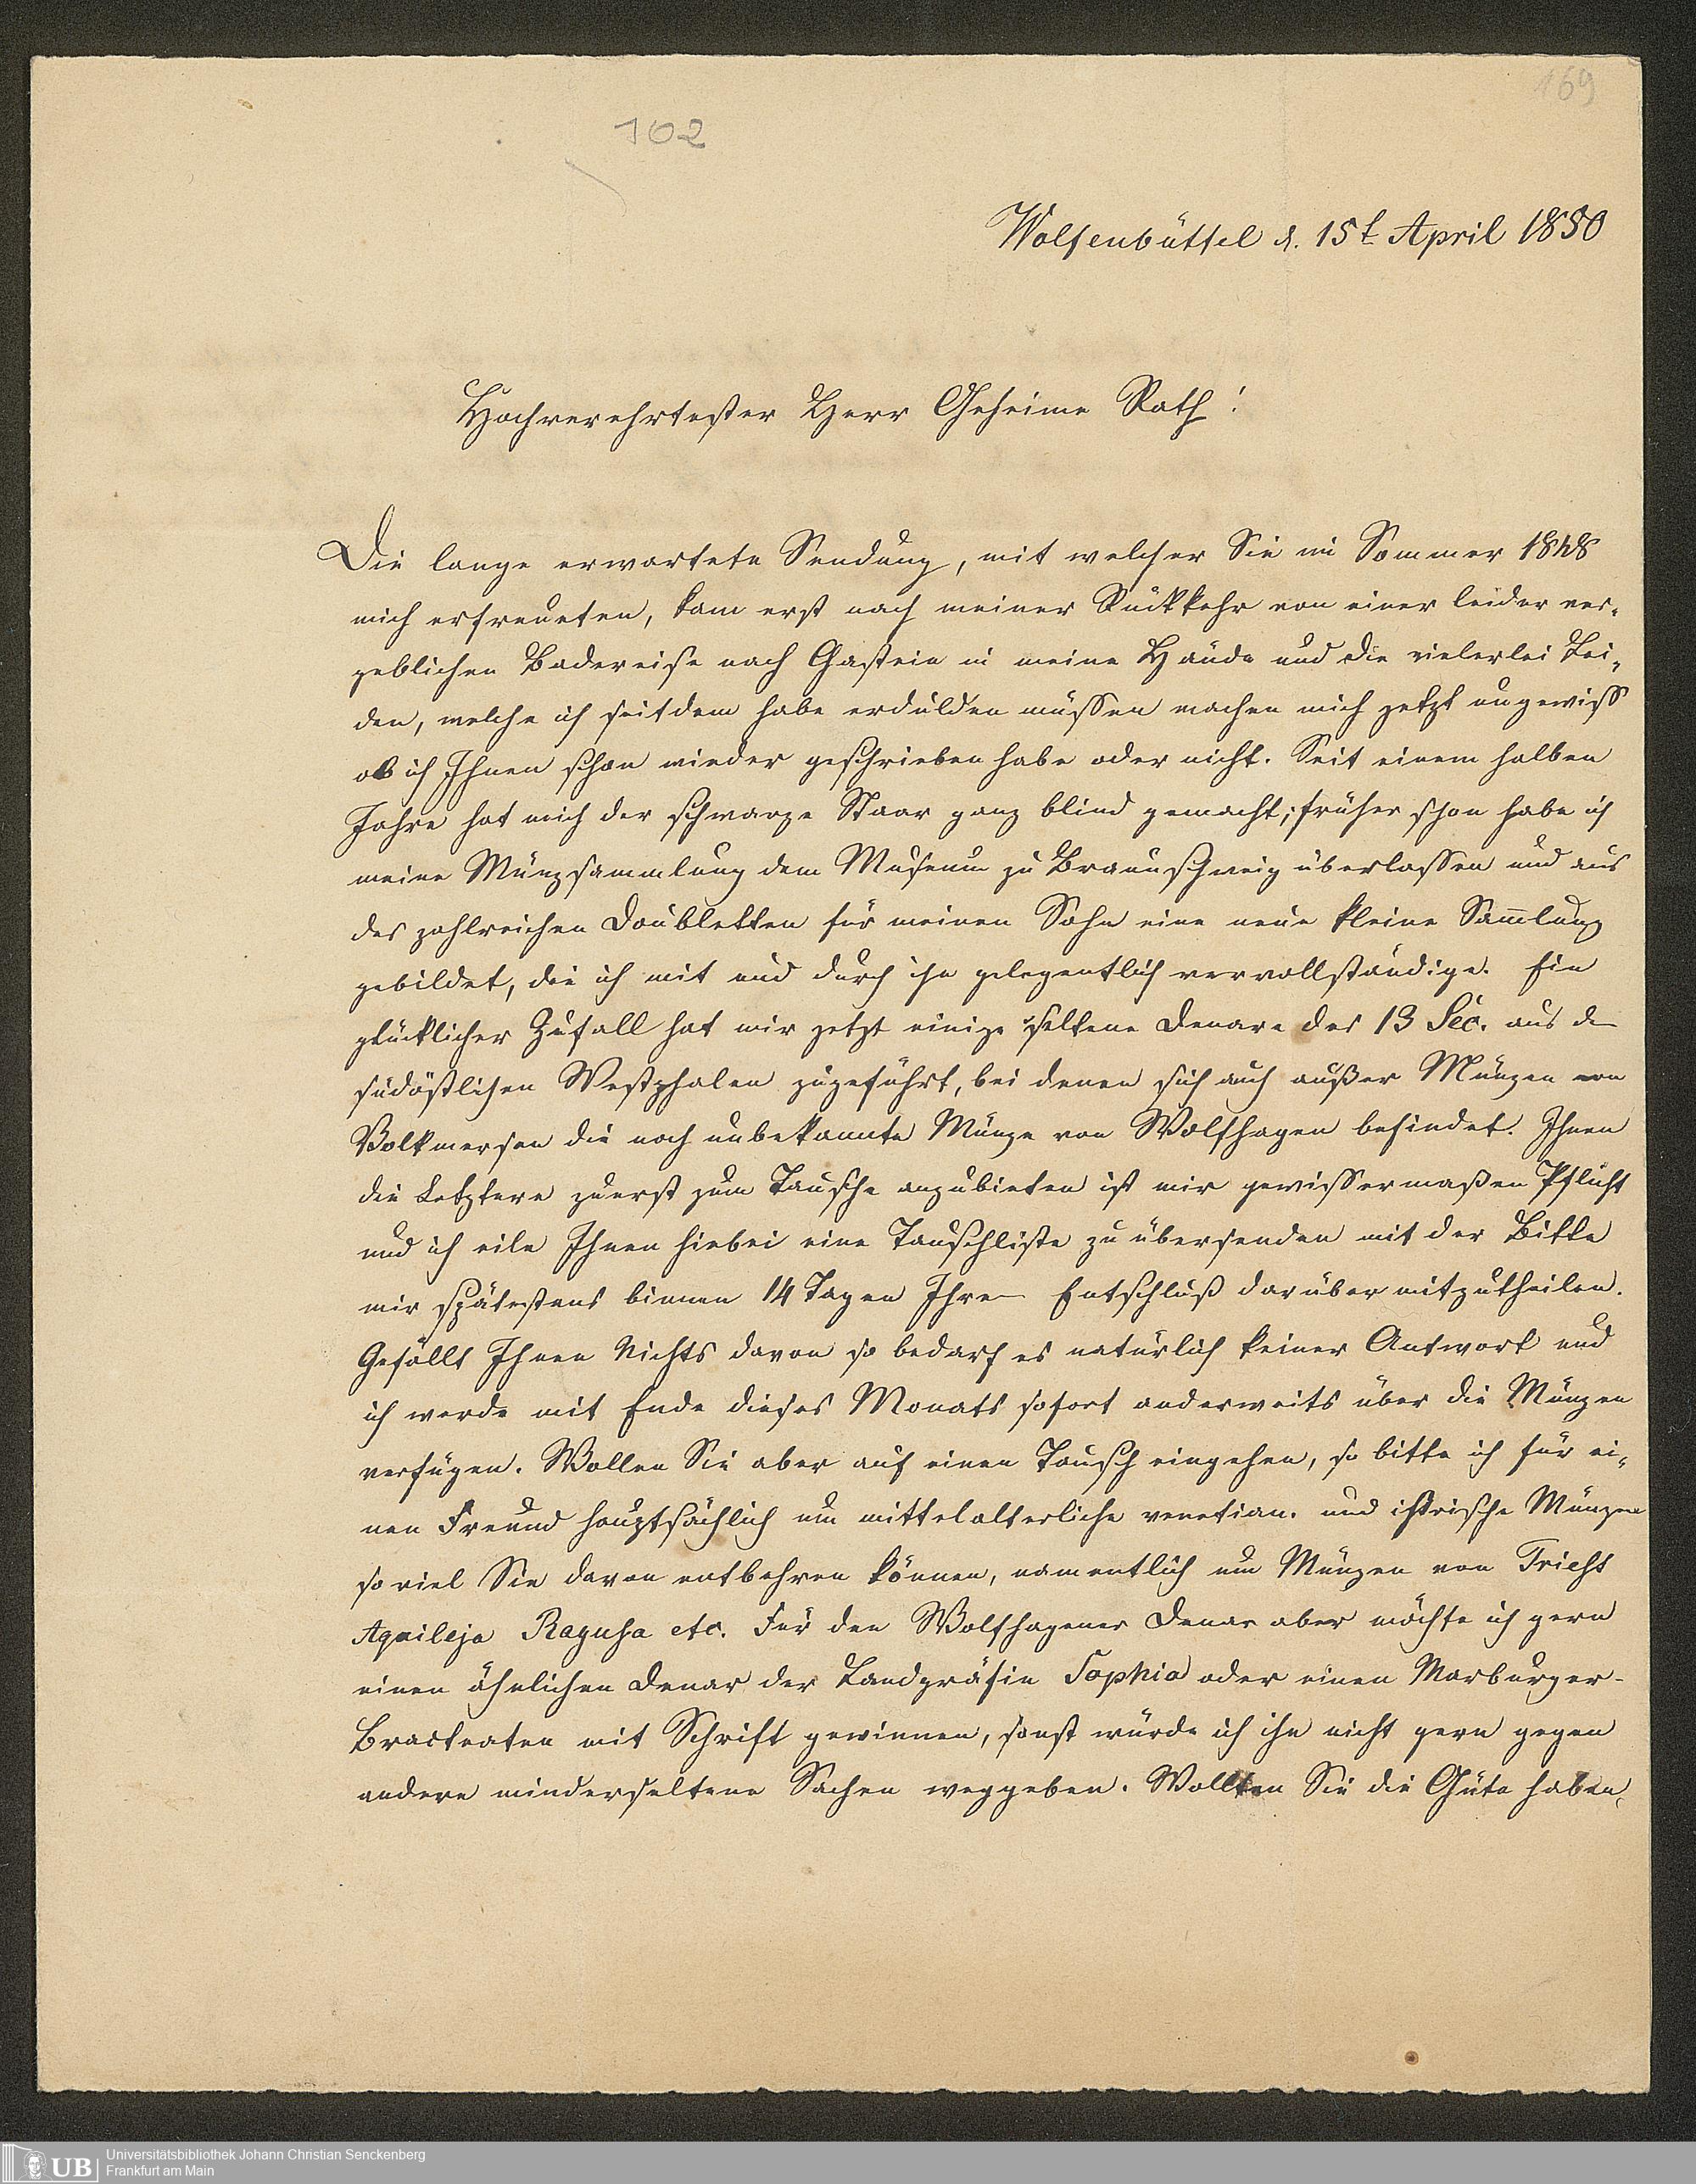 169
102
Wolfenbüttel d. 15t April 1850
Hochverehrtester Herr Geheime Rath!
Die lange erwartete Sendung, mit welcher Sie im Sommer 1848
mich erfreueten, kam erst nach meiner Rückkehr von einer leider ver-
geblichen Badereise nach Gastein in meine Hände und die vielerlei Lei-
den, welche ich seitdem habe erdulden müssen machen mich jetzt ungewiss
ob ich Ihnen schon wieder geschrieben habe oder nicht. Seit einem halben
Jahre hat mich der schwarze Staar ganz blind gemacht; früher schon habe ich
meine Münzsammlung dem Museum zu Braunschweig überlassen und aus
des zahlreichen Doubletten für meinen Sohn eine neue kleine Sam̅lung
gebildet, die ich mit und durch ihn gelegentlich vervollständige. Ein
glücklicher Zufall hat mir jetzt einige seltene Denare des 13 Séc. aus de
südöstlichen Westphalen zugeführt, bei denen sich auch außer Münzen von
Volkmersen die noch unbekannte Münze von Wolfhagen befindet. Ihnen
die Letztere zuerst zum Tausche anzubieten ist mir gewissermaßen Pflicht
und ich eile Ihnen hiebei eine Tauschliste zu übersenden mit der Bitte
mir spätestens binnen 14 Tagen Ihren Entschluß darüber mitzutheilen.
Gefällt Ihnen Nichts davon so bedarf es natürlich keiner Antwort und
ich werde mit Ende dieses Monats sofort anderweits über die Münzen
verfügen. Wollen Sie aber auf einen Tausch eingehen, so bitte ich für ei-
nen Freund hauptsächlich um mittelalterliche venetian. und istrische Münzen
so viel Sie davon entbehren können, namentlich um Münzen von Triest
Aquileja Ragusa etc. Für den Wolfhagener Denar aber möchte ich gern
einen ähnlichen Denar der Landgräfin Sophia oder einen Marburger-
Bracteaten mit Schrift gewinnen, sonst würde ich ihn nicht gern gegen
andere minderseltene Sachen weggeben. Wollten Sie die Güte haben,
UB
Universitätsbibliothek Johann Christian Senckenberg
Frankfurt am Main